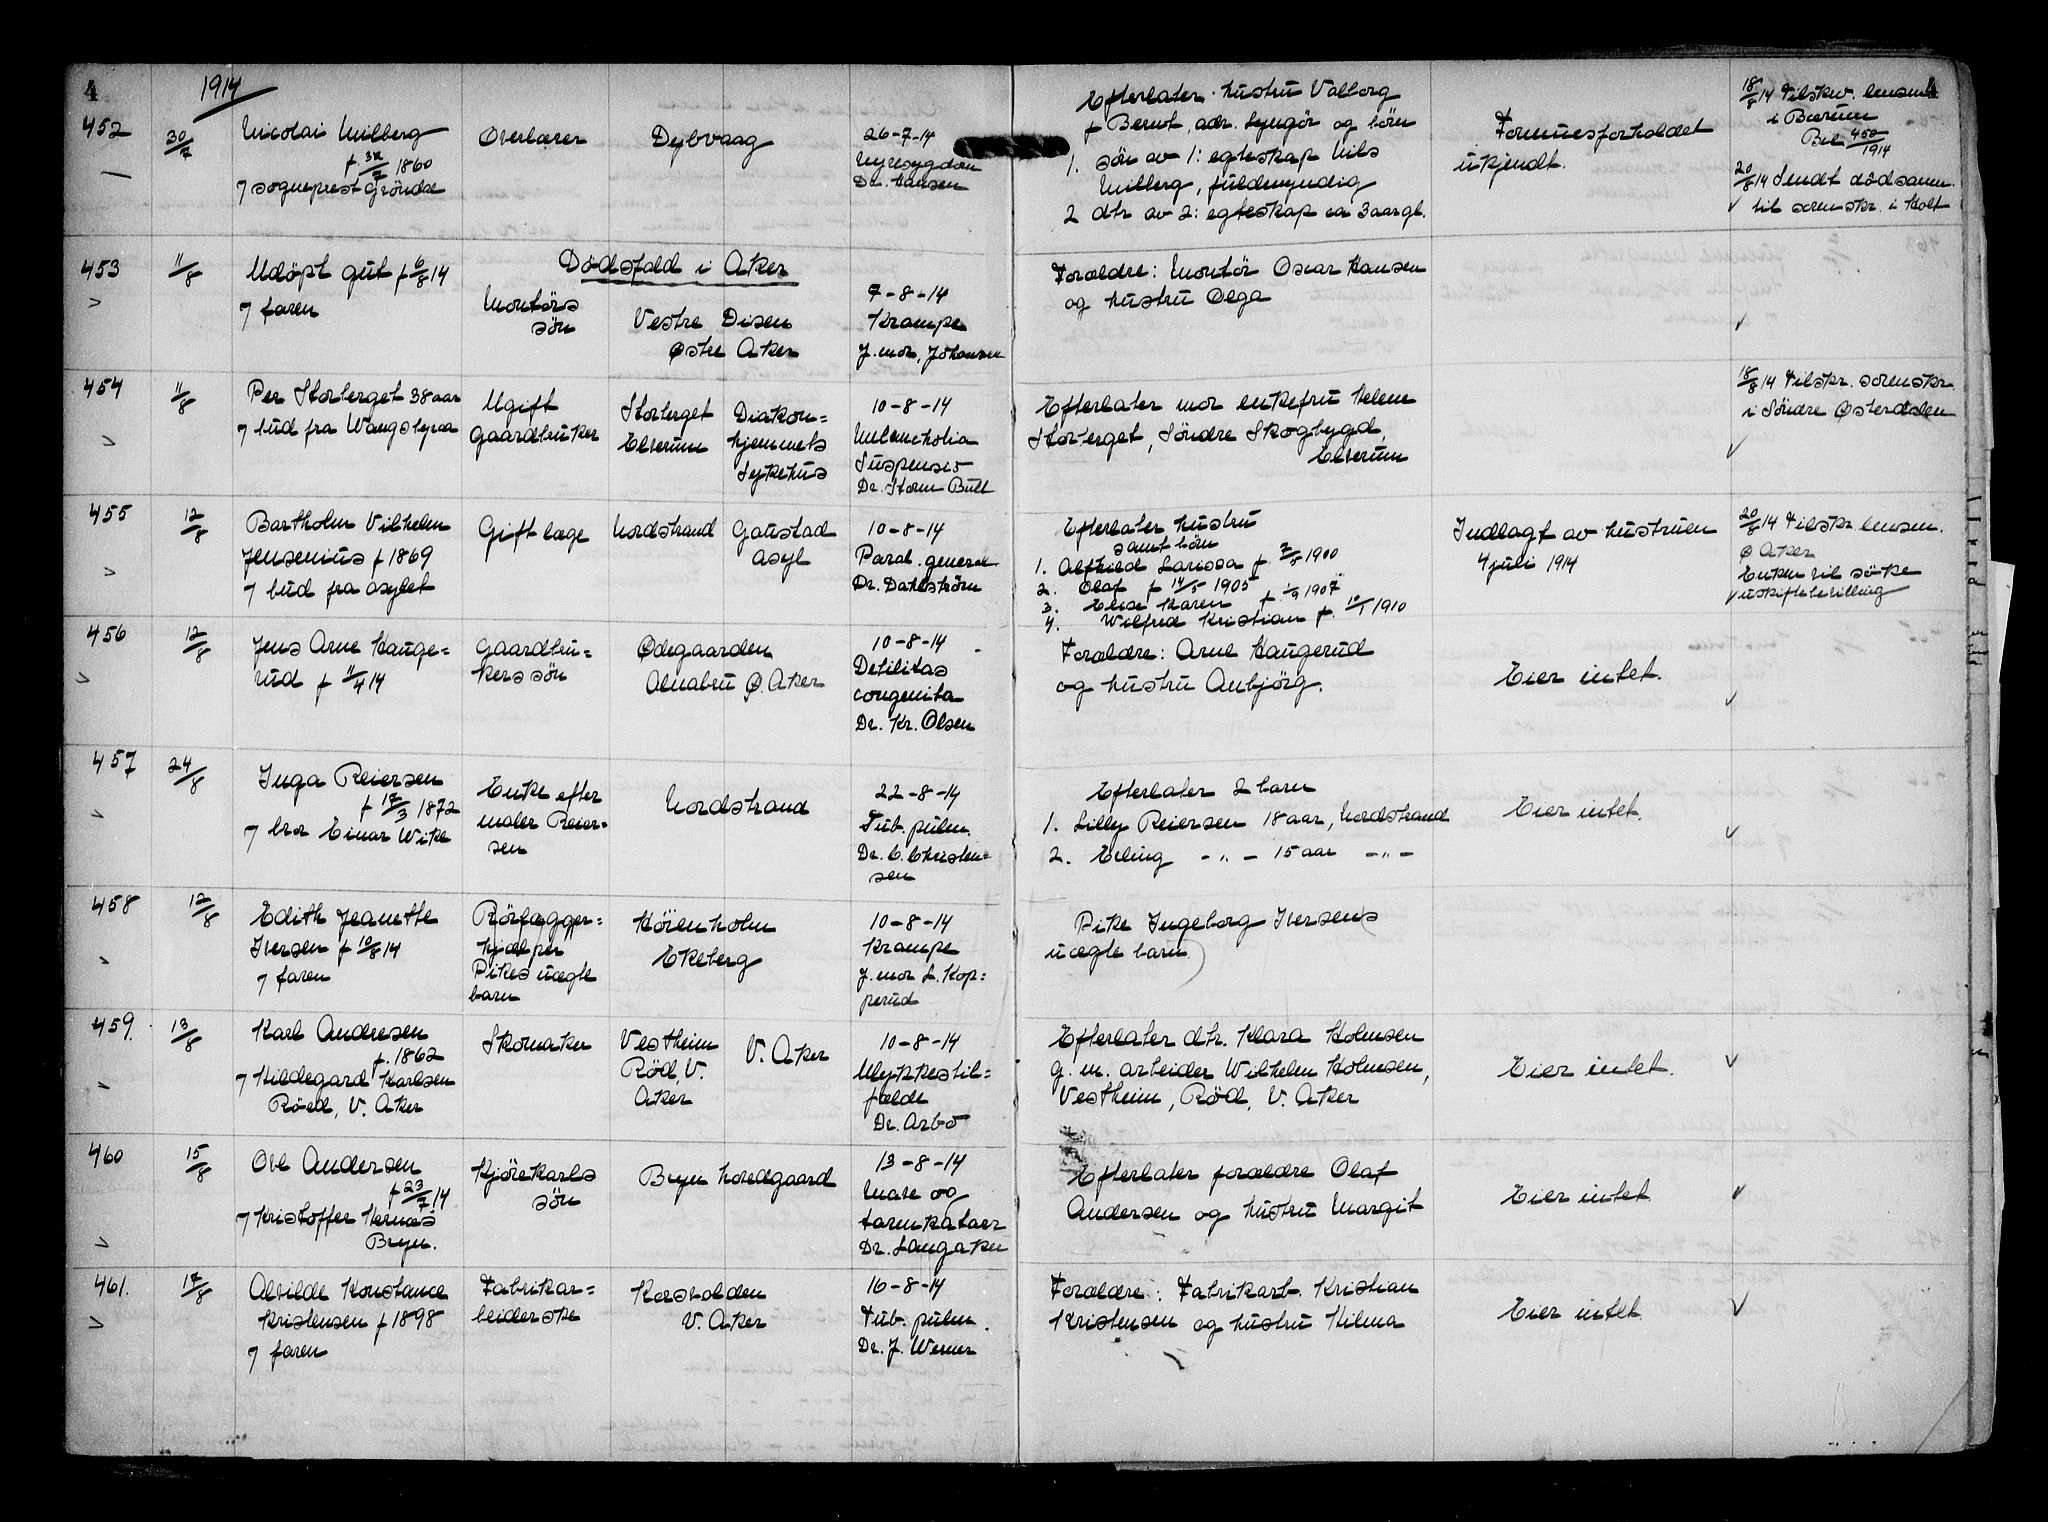 4
1914
452
30/7
Nicolai Milberg
f. 1860
sogneprest Gröndal
Overlærer
Dybvaag
26-7-14
Nyresygdom
Dr. Hansen
Efterlater hustru Valborg
f Bernt, adr. Lyngör og börn
1. sön av 1: egteskap Nils
Milberg, fuldmyndig
2 dtr av 2: egteskap ca 3 aar gl.
Formuesforholdet
ukjendt.
18/8 14 Tilskr. lensm.
i Bærum
Bil 450/1914
20/8 14 Sendt dödsanm.
til sorenskr. i Holt
453
11/8
Udöpt gut f 6/8 14
faren
Dödsfald i Aker
Montörs
sön
Vestre Disen
Østre Aker
7-8-14
Krampe
J.mor, Johansen
Forældre: Montör Oscar Hansen
og hustru Olga
454
11/8
Per Storberget 38 aar
bud fra
Ugift
Gaardbruker
Storberget
Elverum
Diakon=
hjemmets
Sykehus
10-8-14
Melancholia
Suspensio
Dr. Storm Bull
Efterlater mor enkefru Helene
Storberget, Söndre Skogbygd,
Elverum
18/8 14 Tilskr. sorenskr
i Söndre Østerdalen
455
12/8
Bartholm Vilhelm
Jensenius f 1869
bud fra asylet
Gift læge
Nordstrand
Gaustad
asyl
10-8-14
Paral. general
Dr. Dahlström
Efterlater hustru
samt börn
1. Alfhild Larissa f 2/5 1900
2. Olaf f 14/5 1905
3. Else Karen f 1/9 1907
4. Wilfred Kristian f. 10/1 1910
Indlagt av hustruen
4 juli 1914
20/8 14 Tilskr. lensm.
Ø Aker
Enken vil söke
uskiftebevilling
456
12/8
Jens Arne Hauge=
rud f 11/4 14
Gaardbru=
kers sön
Ødegaarden
Alnabru Ø. Aker
10-8-14
Debilitas
congenita
Dr. Kr. Olsen
Forældre: Arne Haugerud
og hustru Anbjörg.
Eier intet.
457
24/8
Inga Reiersen
f 17/3 1872
bror Einar Wike
Enke efter
maler Reier=
sen
Nordstrand
22-8-14
Tub. pulm.
Dr. C. Christen=
sen
Efterlater 2 barn
1. Lilly Reiersen 18 aar, Nordstrand
2. Erling -"- 15 aar -"-
Eier intet.
458
12/8
Edith Jeanette
Iversen f 10/8 14
faren
Rörlægger=
hjælper
Pikes uægte
barn
Körenholm
Ekeberg
10-8-14
Krampe
J.mor L. Kop=
perud
Pike Ingeborg Iversens
uægte barn
459.
13/8
Karl Andresen
f. 1862
Hildegard Karlsen
Röed, V. Aker
Skomaker
Vestheim
Röd, V.
Aker
V. Aker
10-8-14
Ulykkestil=
fælde
Dr. Arbo
Efterlater dtr. Klara Holmsen
g. m. arbeider Wilhelm Holmsen,
Vestheim, Röd, V. Aker
Eier intet.
460
15/8
Ole Andersen
f 23/7 14
Kristoffer Hernæs
Bryn.
Kjörekarls
sön
Bryn hovedgaard
13-8-14
Mave og
tarmkatarr
Dr. Langaker
Efterlater forældre Olaf
Andersen og hustru Margit
Eier intet
461.
17/8
Alvilde Konstance
Kristensen f 1898
faren
Fabrikar=
beiderske
Korsvolden
V. Aker
16-8-14
Tub. pulm.
Dr. J. Werner
Forældre: Fabrikarb. Kristian
Kristensen og hustru Hilma
Eier intet